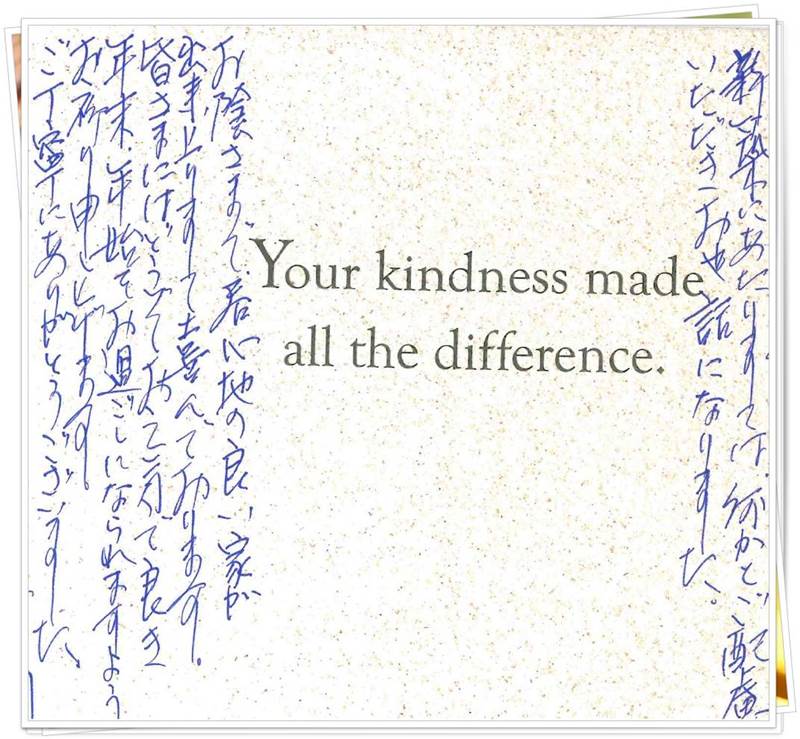 新築にあたりましては、何かとご配慮
いただきお世話になりました。
Your kindness made
all the difference.
お陰さまで居心地の良い家が
出来上りまして喜んでおります。
皆さまにはどうぞお元気で良き
年末、年始をお過ごしになられますよう
お祈り申し上げます。
ご丁寧にありがとうございました。